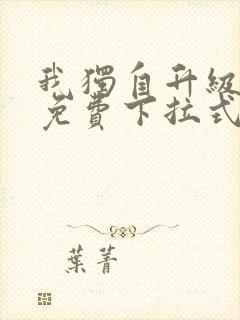 我獨自升級
免費下拉式
葉菁